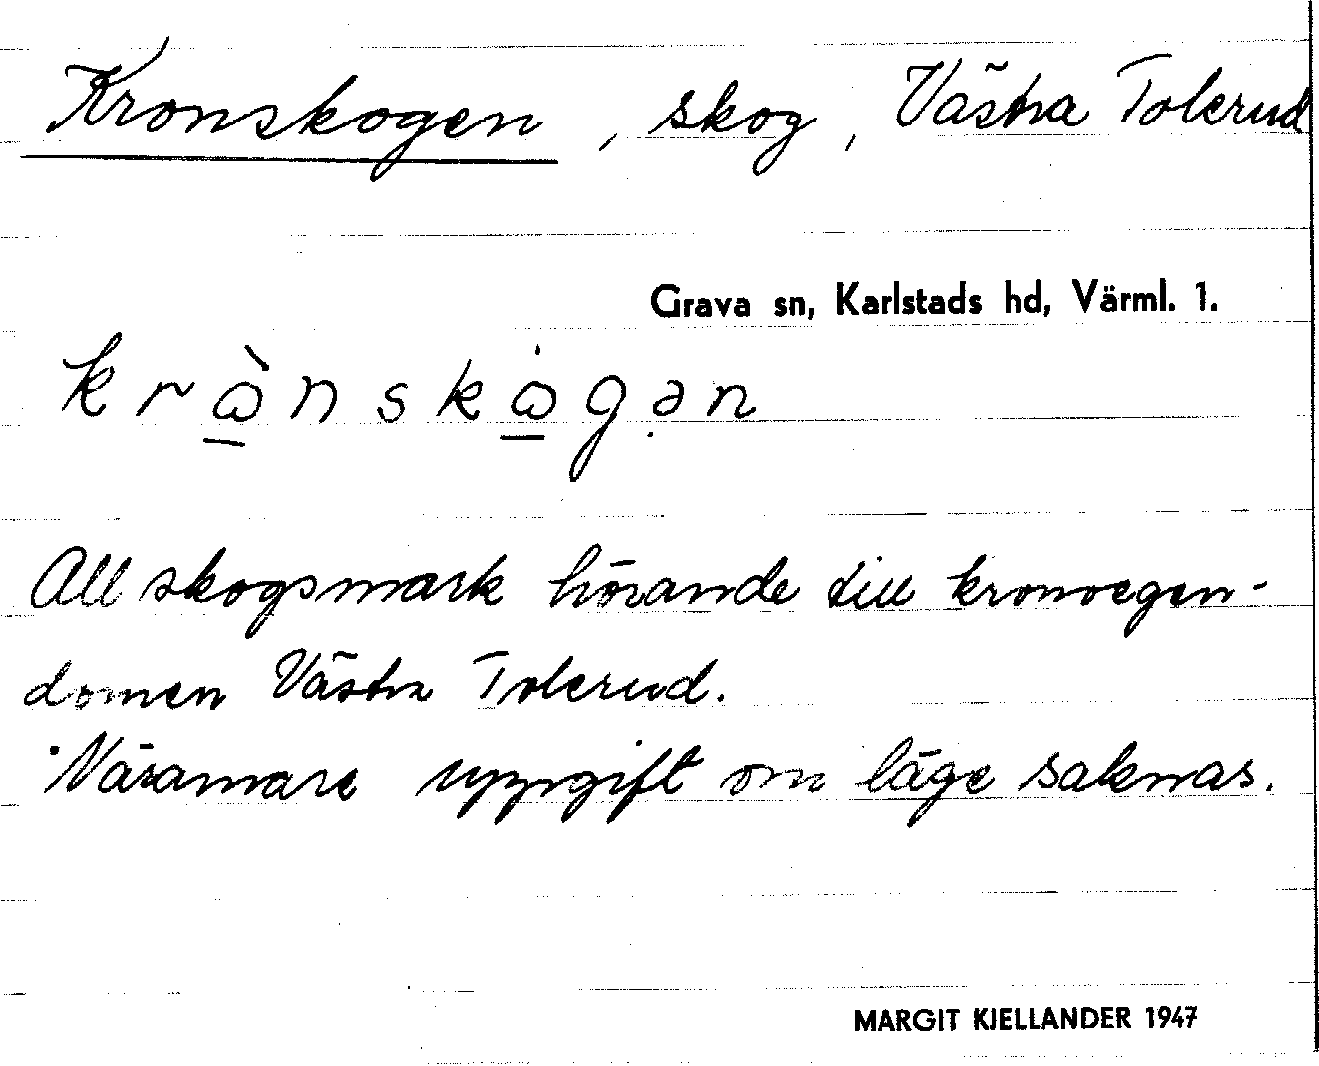 Kronskogen, skog, Västra Tolerud
Grava sn, Karlstads hd, Värml. 1.
krὼ̲nskω̲̇gə̣n
All skogsmark hörande till kronoegen-
domen Västra Tolerud.
Närmare uppgift om läge saknas.
MARGIT KJELLANDER 1947